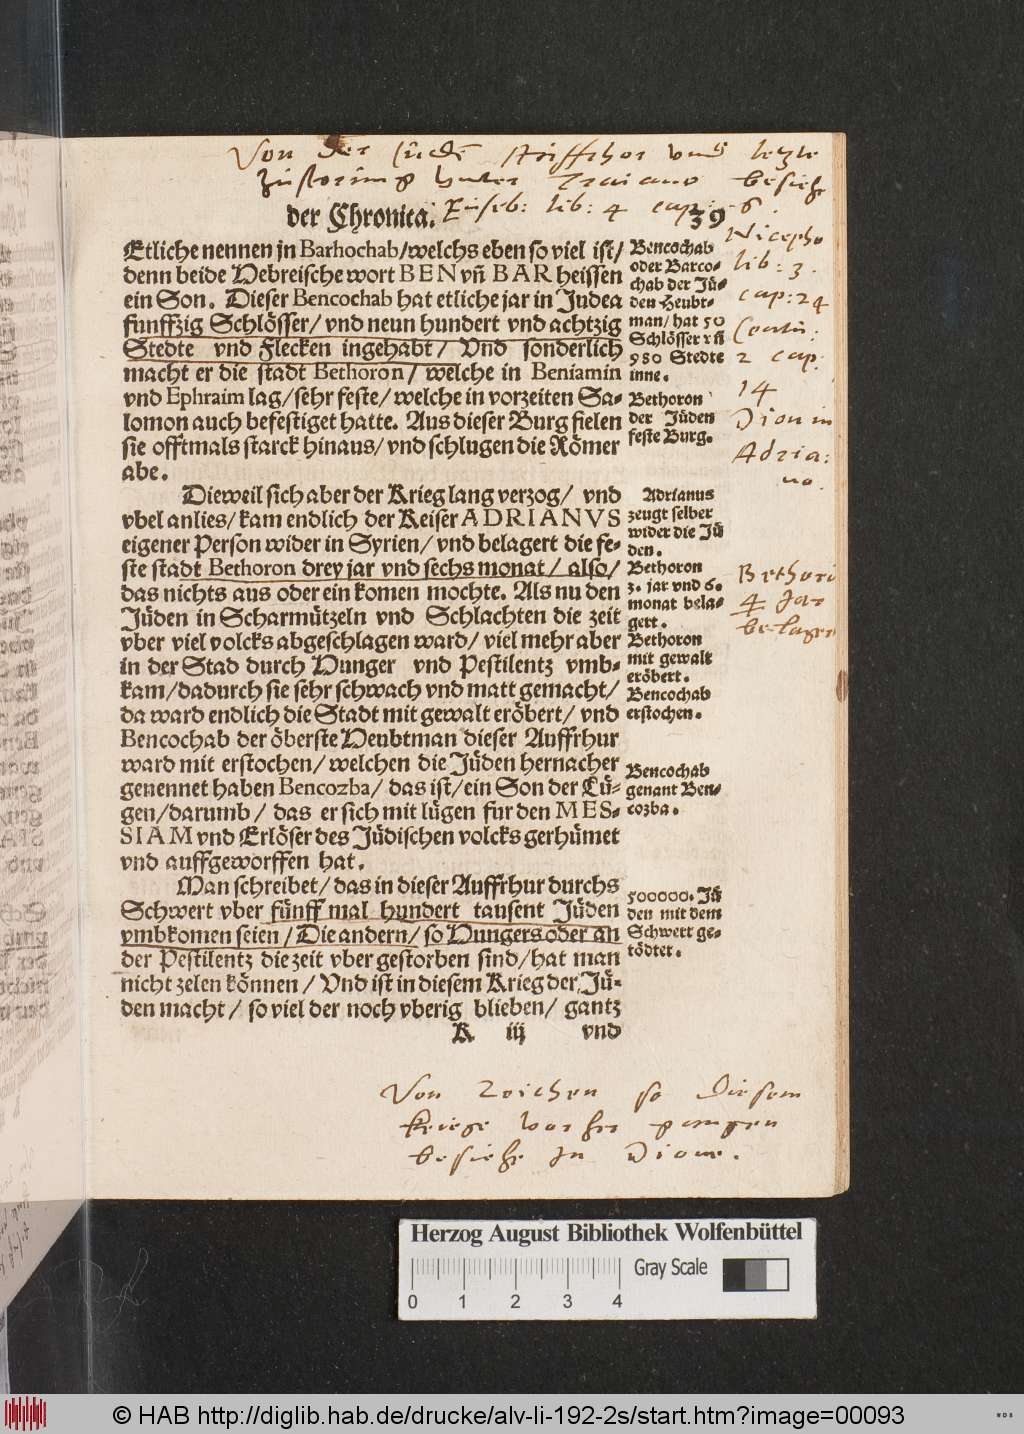 Von der Jüden Auffrhor vnd letzte
Zustörung vnter Traiano besiehe
Euseb: lib: 4 cap: 6.
der Chronica. 39
Etliche nennen jn Barhochab/welchs eben so viel ist/
denn beide Hebreische wort BEN vñ BAR heissen
ein Son. Dieser Bencochab hat etliche jar in Judea
funffzig Schlösser/ vnd neun hundert vnd achtzig
Stedte vnd Flecken ingehabt/ Vnd sonderlich
macht er die stadt Bethoron/ welche in Beniamin
vnd Ephraim lag/sehr feste/ welche in vorzeiten Sa-
lomon auch befestiget hatte. Aus dieser Burg fielen
sie offtmals starck hinaus/ vnd schlugen die Römer
abe.
Dieweil sich aber der Krieg lang verzog/ vnd
vbel anlies/ kam endlich der Keiser ADRIANVS
eigener Person wider in Syrien/ vnd belagert die fe-
ste stadt Bethoron drey jar vnd sechs monat/ also/
das nichts aus oder ein komen mochte. Als nu den
Jüden in Scharmützeln vnd Schlachten die zeit
vber viel volcks abgeschlagen ward/ viel mehr aber
in der Stad durch Hunger vnd Pestilentz vmb-
kam/dadurch sie sehr schwach vnd matt gemacht/
da ward endlich die Stadt mit gewalt eröbert/ vnd
Bencochab der öberste Heubtman dieser Auffrhur
ward mit erstochen/ welchen die Jüden hernacher
genennet haben Bencozba/ das ist/ ein Son der Lü-
gen/darumb/ das er sich mit lügen fur den MES-
SIAM vnd Erlöser des Jüdischen volcks gerhümet
vnd auffgeworffen hat.
Man schreibet/ das in dieser Auffrhur durchs
Schwert vber fünff mal hundert tausent Jüden
vmbkomen seien/ Die andern/ so Hungers oder an
der Pestilentz die zeit vber gestorben sind/ hat man
nicht zelen können/ Vnd ist in diesem Krieg der Jü-
den macht/ so viel der noch vberig blieben/ gantz
K iij vnd
Bencochab
oder Barco-
chab der Jü-
den Heubt-
man/ hat 50
Schlösser vñ
980 Stedte
inne.
Bethoron
der Jüden
feste Burg.
Adrianus
zeugt selber
wider die Jü
den.
Bethoron
3. jar vnd 6.
monat bela-
gert.
Bethoron
mit gewalt
eröbert.
Bencochab
erstochen.
Bencochab
genant Ben-
cozba.
500000. Jü
den mit dem
Schwert ge-
tödtet.
Nicepho
lib: 3.
cap: 24
Contin:
2 cap:
14
Dion in
Adria:
no.
Bethoron
4 Jar
belagert
Von Zeichen so Diesem
kriege vorher gangen
besiehe In Dione.
Herzog August Bibliothek Wolfenbüttel
Gray Scale
0 1 2 3 4
© HAB http://diglib.hab.de/drucke/alv-li-192-2s/start.htm?image=00093
WDB